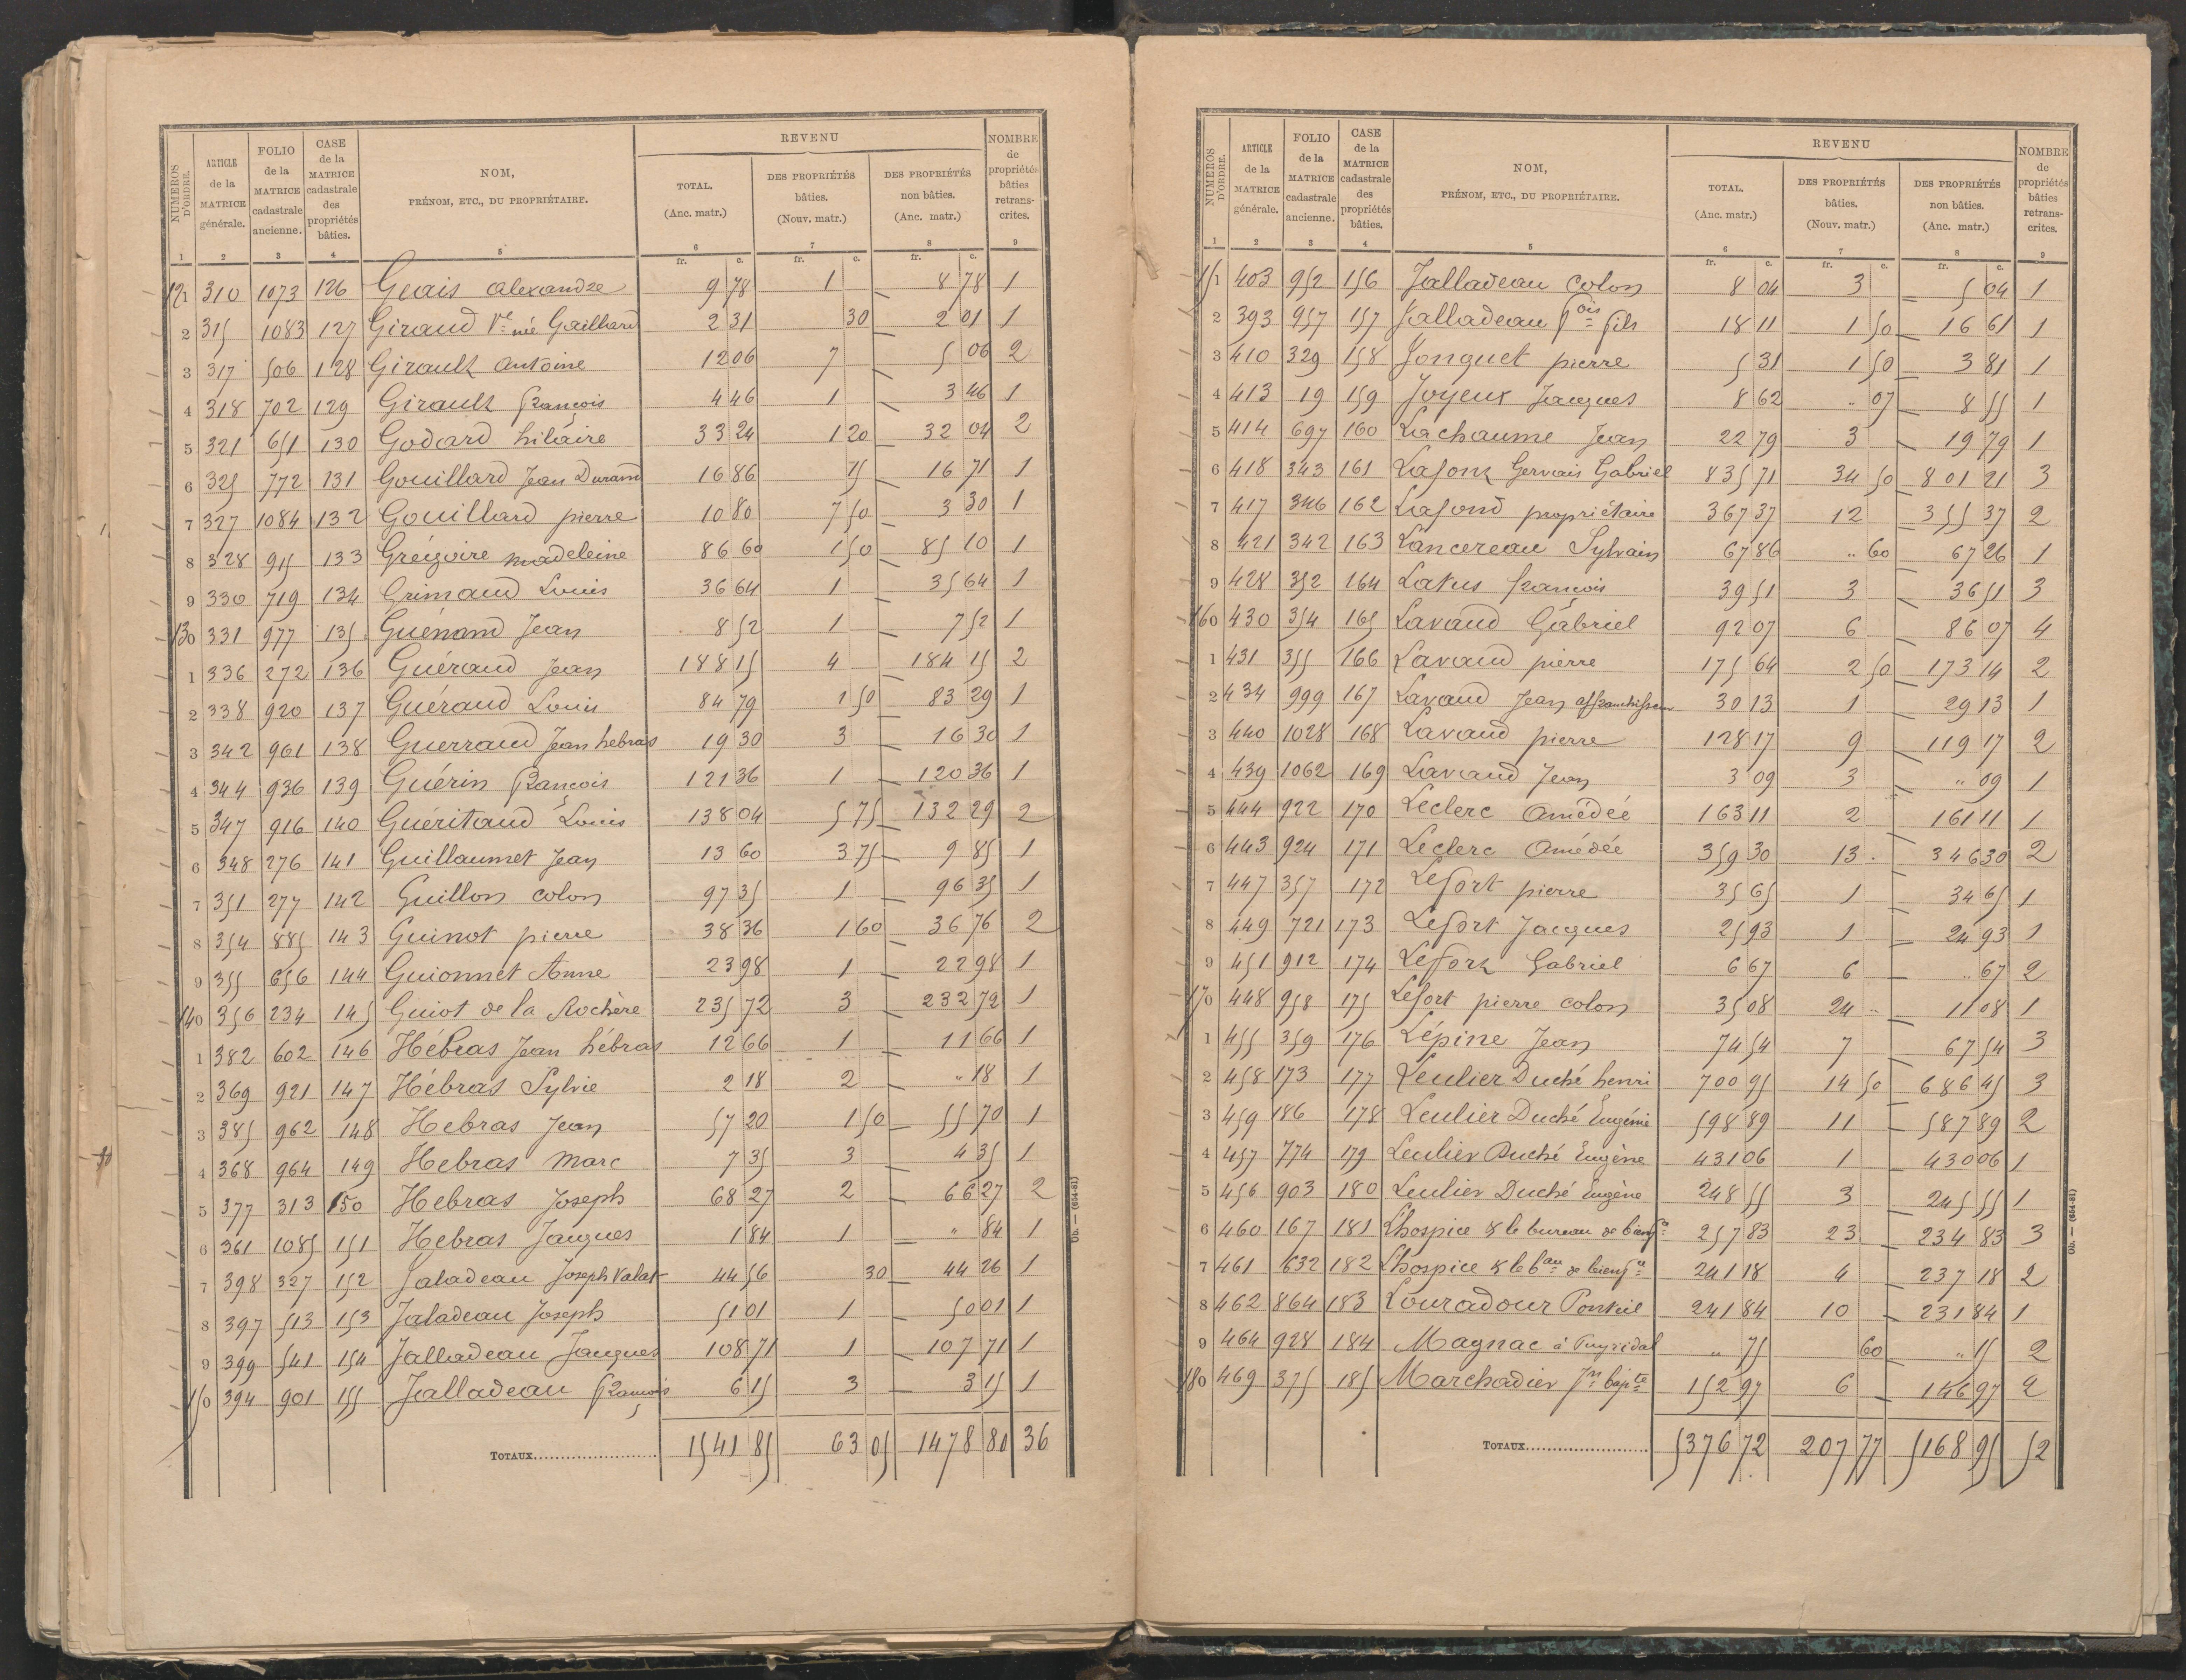 NUMÉROS D'ORDRE. | ARTICLE de la MATRICE générale. | FOLIO de la MATRICE cadastrale ancienne. | CASE de la MATRICE cadastrale des propriétés bâties. | NOM, PRÉNOM, ETC., DU PROPRIÉTAIRE. | REVENU | NOMBRE de propriétés bâties retranscrites.
TOTAL. (Anc. matr.) | DES PROPRIÉTÉS bâties. (Nouv. matr.) | DES PROPRIÉTÉS non bâties. (Anc. matr.)
1 2 3 4 5 6 7 8 9
fr. c. fr. c. fr. c.
121 310 1073 126 Geais alexandre 9 78 1 8 78 1
2 315 1083 127 Giraud Ve née Gaillard 2 31 30 2 01 1
3 317 506 128 Girault antoine 12 06 7 5 06 2
4 318 702 129 Girault françois 4 46 1 3 46 1
5 321 651 130 Godard hilaire 33 24 1 20 32 04 2
6 325 772 131 Gouillard Jean Durand 16 86 15 16 71 1
7 327 1084 132 Gouillard pierre 10 80 7 50 3 30 1
8 328 915 133 Grégoire madeleine 86 60 1 50 85 10 1
9 330 719 134 Grimaud Louis 36 64 1 35 64 1
130 331 977 135 Guénand Jean 8 52 1 7 52 1
1 336 272 136 Guéraud Jean 188 15 4 184 15 2
2 338 920 137 Guéraud Louis 84 79 1 50 83 29 1
3 342 961 138 Guerraud Jean hebras 19 30 3 16 30 1
4 344 936 139 Guérin François 121 36 1 120 36 1
5 347 916 140 Guéritaud Louis 138 04 5 75 132 29 2
6 348 276 141 Guillaumet Jean 13 60 3 75 9 85 1
7 351 277 142 Guillon colon 97 35 1 96 35 1
8 354 885 143 Guinot pierre 38 36 1 60 36 76 2
9 355 656 144 Guionnet Anne 23 98 1 22 98 1
140 356 234 145 Guiot de la Rochère 235 72 3 232 72 1
1 382 602 146 Hébras Jean hébras 12 66 1 11 66 1
2 369 921 147 Hébras Sylvie 2 18 2 " 18 1
3 385 962 148 Hebras Jean 57 20 1 50 55 70 1
4 368 964 149 Hebras Marc 7 35 3 4 35 1
5 377 313 150 Hebras Joseph 68 27 2 66 27 2
6 361 1085 151 Hebras Jacques 1 84 1 " 84 1
7 398 327 152 Jaladeau Joseph Valat 44 56 30 44 26 1
8 397 513 153 Jaladeau Joseph 51 01 1 50 01 1
9 399 541 154 Jalladeau Jacques 108 71 1 107 71 1
150 394 901 155 Jalladeau François 6 15 3 3 15 1
TOTAUX 1541 85 63 05 1478 80 36
Ob. — (654-81)
NUMÉROS D'ORDRE. | ARTICLE de la MATRICE générale. | FOLIO de la MATRICE cadastrale ancienne. | CASE de la MATRICE cadastrale des propriétés bâties. | NOM, PRÉNOM, ETC., DU PROPRIÉTAIRE. | REVENU | NOMBRE de propriétés bâties retranscrites.
TOTAL. (Anc. matr.) | DES PROPRIÉTÉS bâties. (Nouv. matr.) | DES PROPRIÉTÉS non bâties. (Anc. matr.)
1 2 3 4 5 6 7 8 9
fr. c. fr. c. fr. c.
151 403 952 156 Jalladeau colon 8 04 3 5 04 1
2 393 957 157 Jalladeau fois fils 18 11 1 50 16 61 1
3 410 329 158 Jonquet pierre 5 31 1 50 3 81 1
4 413 19 159 Joyeux Jacques 8 62 " 07 8 55 1
5 414 697 160 Lachaume Jean 22 79 3 19 79 1
6 418 343 161 Lafont Gervais Gabriel 835 71 34 50 801 21 3
7 417 346 162 Lafond propriétaire 367 37 12 355 37 2
8 421 342 163 Lancereau Sylvain 67 86 " 60 67 26 1
9 428 352 164 Latus françois 39 51 3 36 51 3
160 430 354 165 Lavaud Gabriel 92 07 6 86 07 4
1 431 355 166 Lavaud pierre 175 64 2 50 173 14 2
2 434 999 167 Lavaud Jean 30 13 1 29 13 1
3 440 1028 168 Lavaud pierre 128 17 9 119 17 2
4 439 1062 169 Lavaud Jean 3 09 3 " 09 1
5 444 922 170 Leclerc Amédée 163 11 2 161 11 1
6 443 924 171 Leclerc Amédée 359 30 13 346 30 2
7 447 357 172 Lefort pierre 35 65 1 34 65 1
8 449 721 173 Lefort Jacques 25 93 1 24 93 1
9 451 912 174 Lefort Gabriel 6 67 6 " 67 2
170 448 958 175 Lefort pierre colon 35 08 24 " 11 08 1
1 455 359 176 Lépine Jean 74 54 7 67 54 3
2 458 173 177 Leulier Duché henri 700 95 14 50 686 45 3
3 459 186 178 Leulier Duché Eugénie 598 89 11 587 89 2
4 457 774 179 Leulier Duché Eugène 431 06 1 430 06 1
5 456 903 180 Leulier Duché Eugène 248 55 3 245 55 1
6 460 167 181 Lhospice & le bureau de bienfce 257 83 23 234 83 3
7 461 632 182 Lhospice & le bau de bienfce 241 18 4 237 18 2
8 462 864 183 Louradour Ponteil 241 84 10 231 84 1
9 464 928 184 Magnac à Puyridal " 75 60 " 15 2
180 469 375 185 Marchadier Jn bapte 152 97 6 146 97 2
TOTAUX 5376 72 207 77 5168 95 52
Ob. — (654-81)